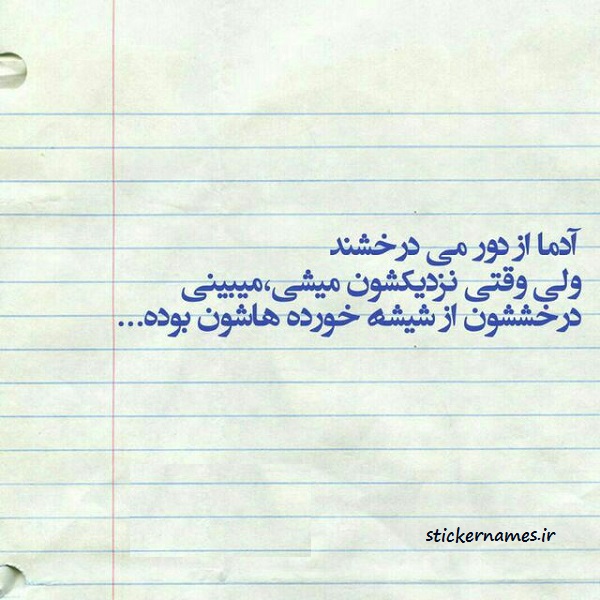 آدما از دور می درخشند
ولی وقتی نزدیکشون میشی،میبینی
درخششون از شیشه خورده هاشون بوده...
stickernames.ir